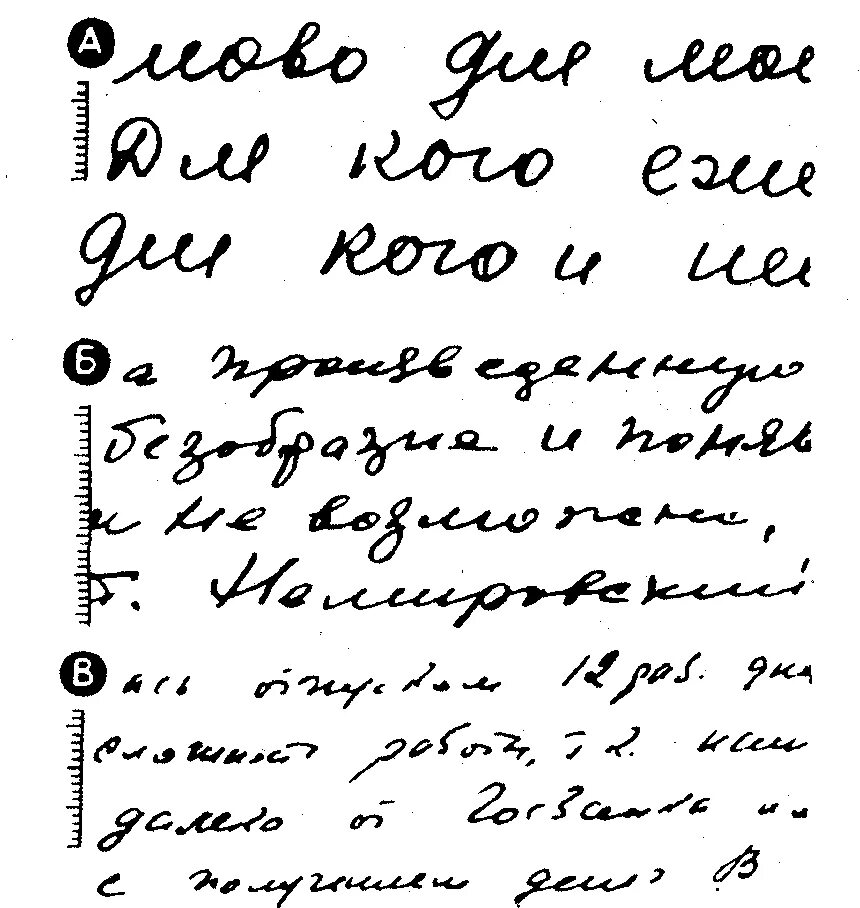 А
ново для мое
Для кого еже
для кого и не
Б
а произведенную
безобразие и понять
и не возможно,
т. Немировский
В
ись отпуском 12 раб. дня
сложность работы, т к. наш
далеко от Госбанка
с получением денег В